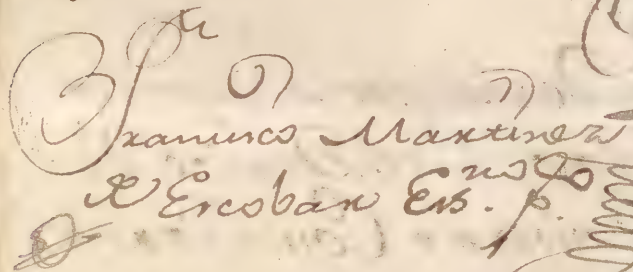 Francisco Martinez
de Escobar Es.no p.co